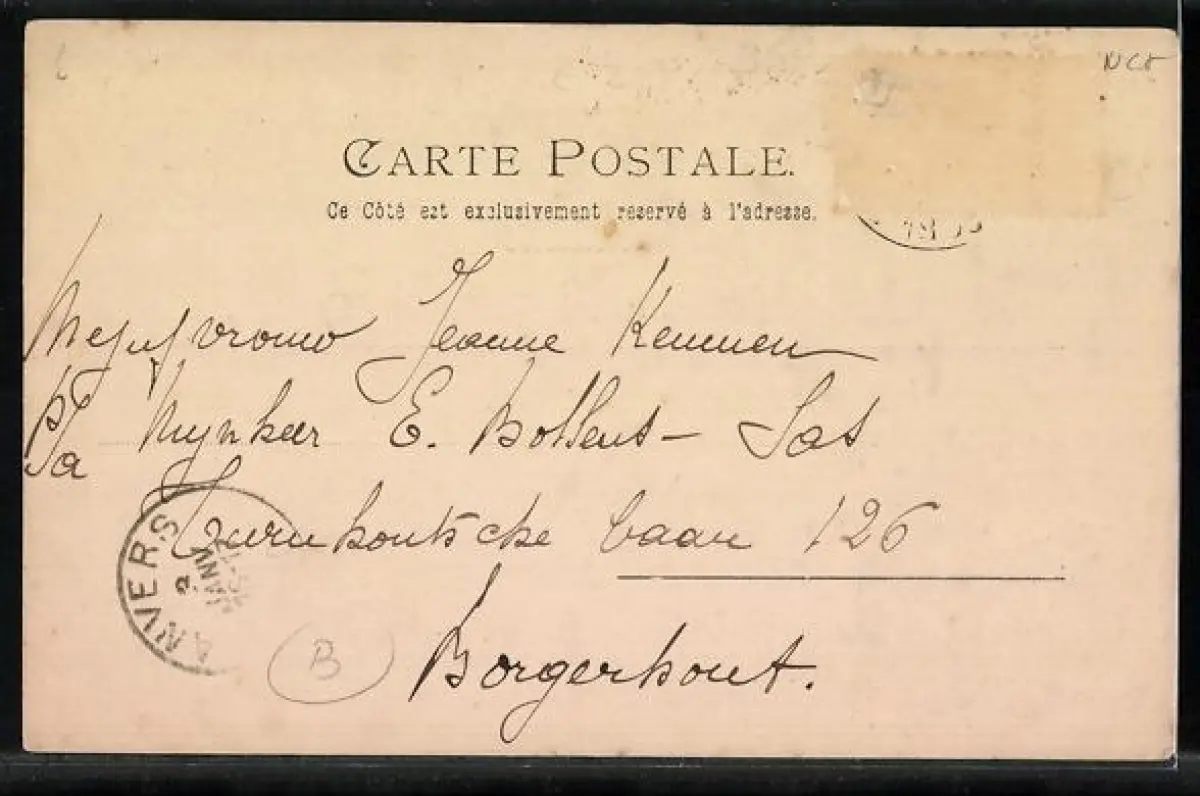 NC8
CARTE POSTALE.
Ce Côté est exclusivement reservé à l'adresse.
Mejufvrouw Jeanne Kennen
P/a Mynheer E. Bollens - Sas
Turnhoutsche baan 126
Borgerhout.
ANVERS
JANV
B